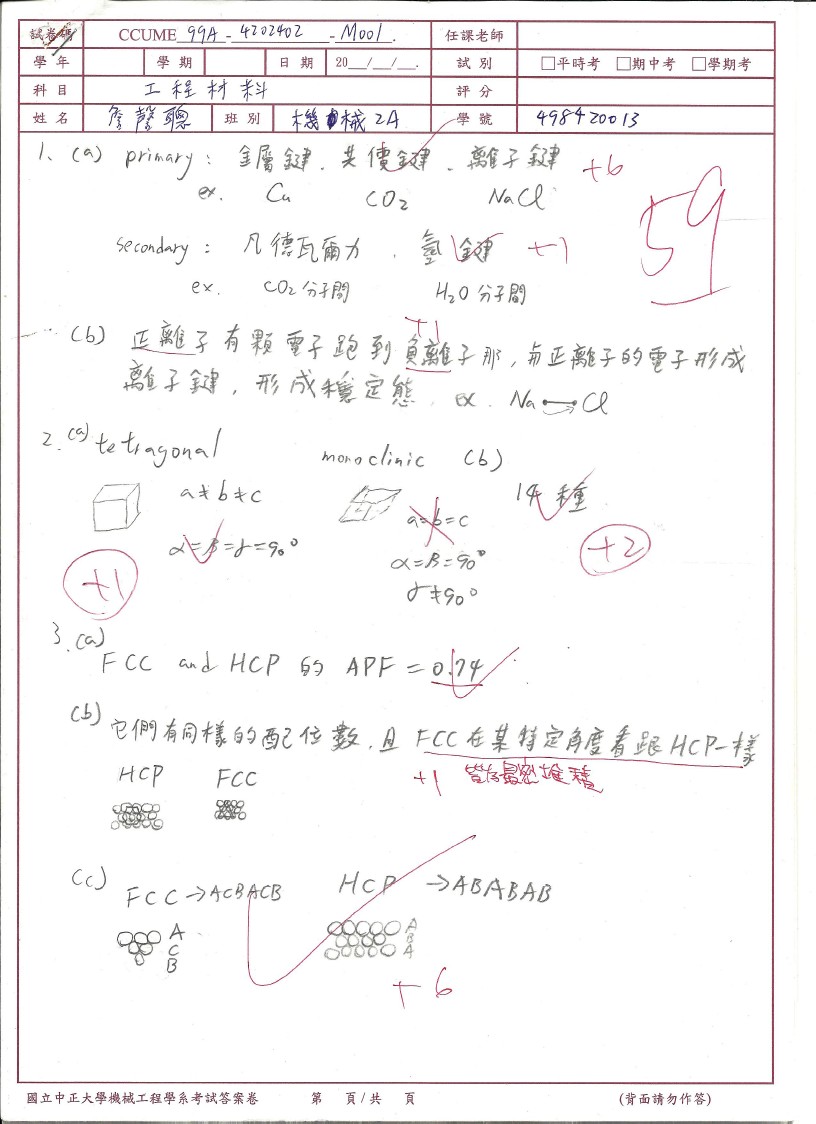 試卷碼 CCUME 99A - 4202402 - M001. 任課老師
學年 學期 日期 20__/__/__. 試別 □平時考 □期中考 □學期考
科目 工程材料 評分
姓名 詹馨聰 班別 機械2A 學號 498420013
1. (a) primary: 金屬鍵、共價鍵、離子鍵 +6
ex. Cu CO2 NaCl
59
secondary: 凡德瓦爾力、氫鍵 +1
ex. CO2分子間 H2O分子間
+1
(b) 正離子有顆電子跑到負離子那,與正離子的電子形成
離子鍵,形成穩定態. ex. Na Cl
2. (a) tetragonal monoclinic (b)
a≠b≠c 14種
a=b=c
α=β=γ=90° +2
α=β=90°
+1 γ≠90°
3. (a)
FCC and HCP 的 APF = 0.74
(b) 它們有同樣的配位數,且 FCC在某特定角度看跟HCP一樣
HCP FCC +1 皆為最密堆積
(c) FCC→ACBACB HCP →ABABAB
A A
C B
B A
+6
國立中正大學機械工程學系考試答案卷 第 頁/共 頁 (背面請勿作答)